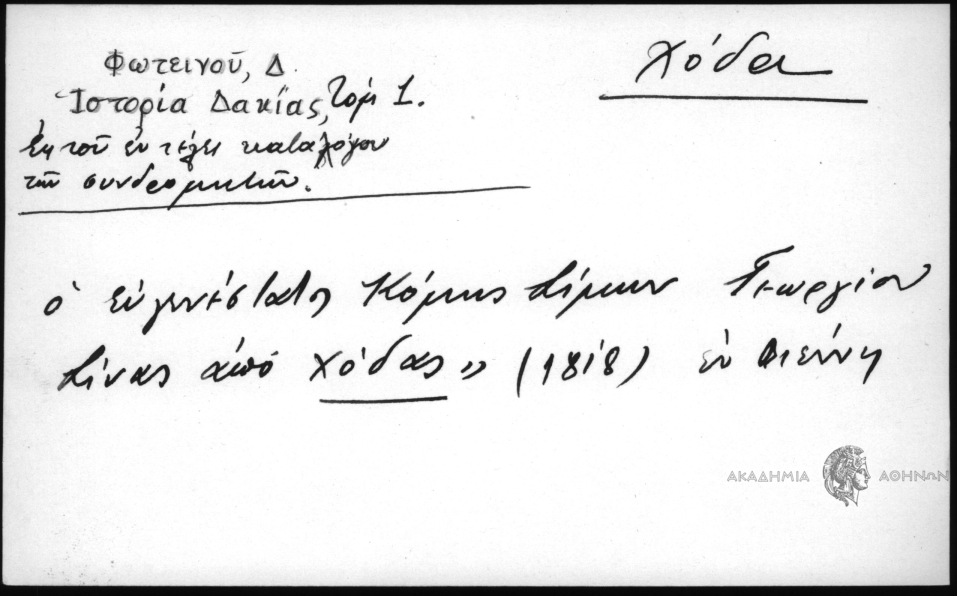 Φωτεινοῦ, Δ.
Ἱστορία Δακίας, τόμ 1.
Ἐκ τοῦ ἐν τέλει καταλόγου
τῶν συνδρομητῶν.
Χόδα
ὁ εὐγενέστατος Κόμης Σίμων Γεωργίου
Σίνας ἀπό Χόδας» (1818) ἐν Βιέννῃ
ΑΚΑΔΗΜΙΑ ΑΘΗΝΩΝ